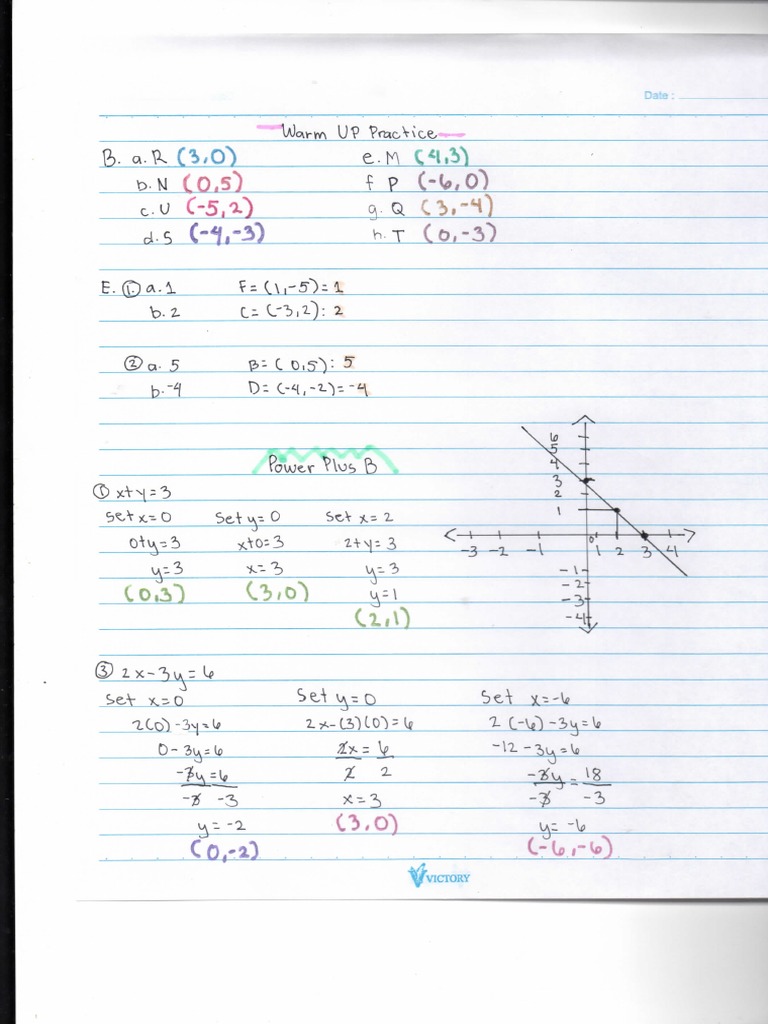 Date :
Warm UP Practice
B. a. R (3,0) e. M (4,3)
b. N (0,5) f P (-6,0)
c. U (-5,2) g. Q (3,-4)
d. S (-4,-3) h. T (0,-3)
E. ①. a. 1 F = (1,-5) = 1
b. 2 C = (-3,2) : 2
② a. 5 B = (0,5) : 5
b. -4 D = (-4,-2) = -4
Power Plus B
① x+y=3
set x=0 Set y=0 Set x = 2
0+y=3 x+0=3 2+y=3
y=3 x=3 y=3
(0,3) (3,0) y=1
(2,1)
6
5
4
3
2
1
-3 -2 -1 0 1 2 3 4
-1
-2
-3
-4
③ 2x-3y=6
set x=0 Set y=0 Set x=-6
2(0)-3y=6 2x-(3)(0)=6 2(-6)-3y=6
0-3y=6 2x = 6 -12-3y=6
-3y=6 2 2 -3y = 18
-3 -3 x=3 -3 -3
y=-2 (3,0) y=-6
(0,-2) (-6,-6)
VICTORY